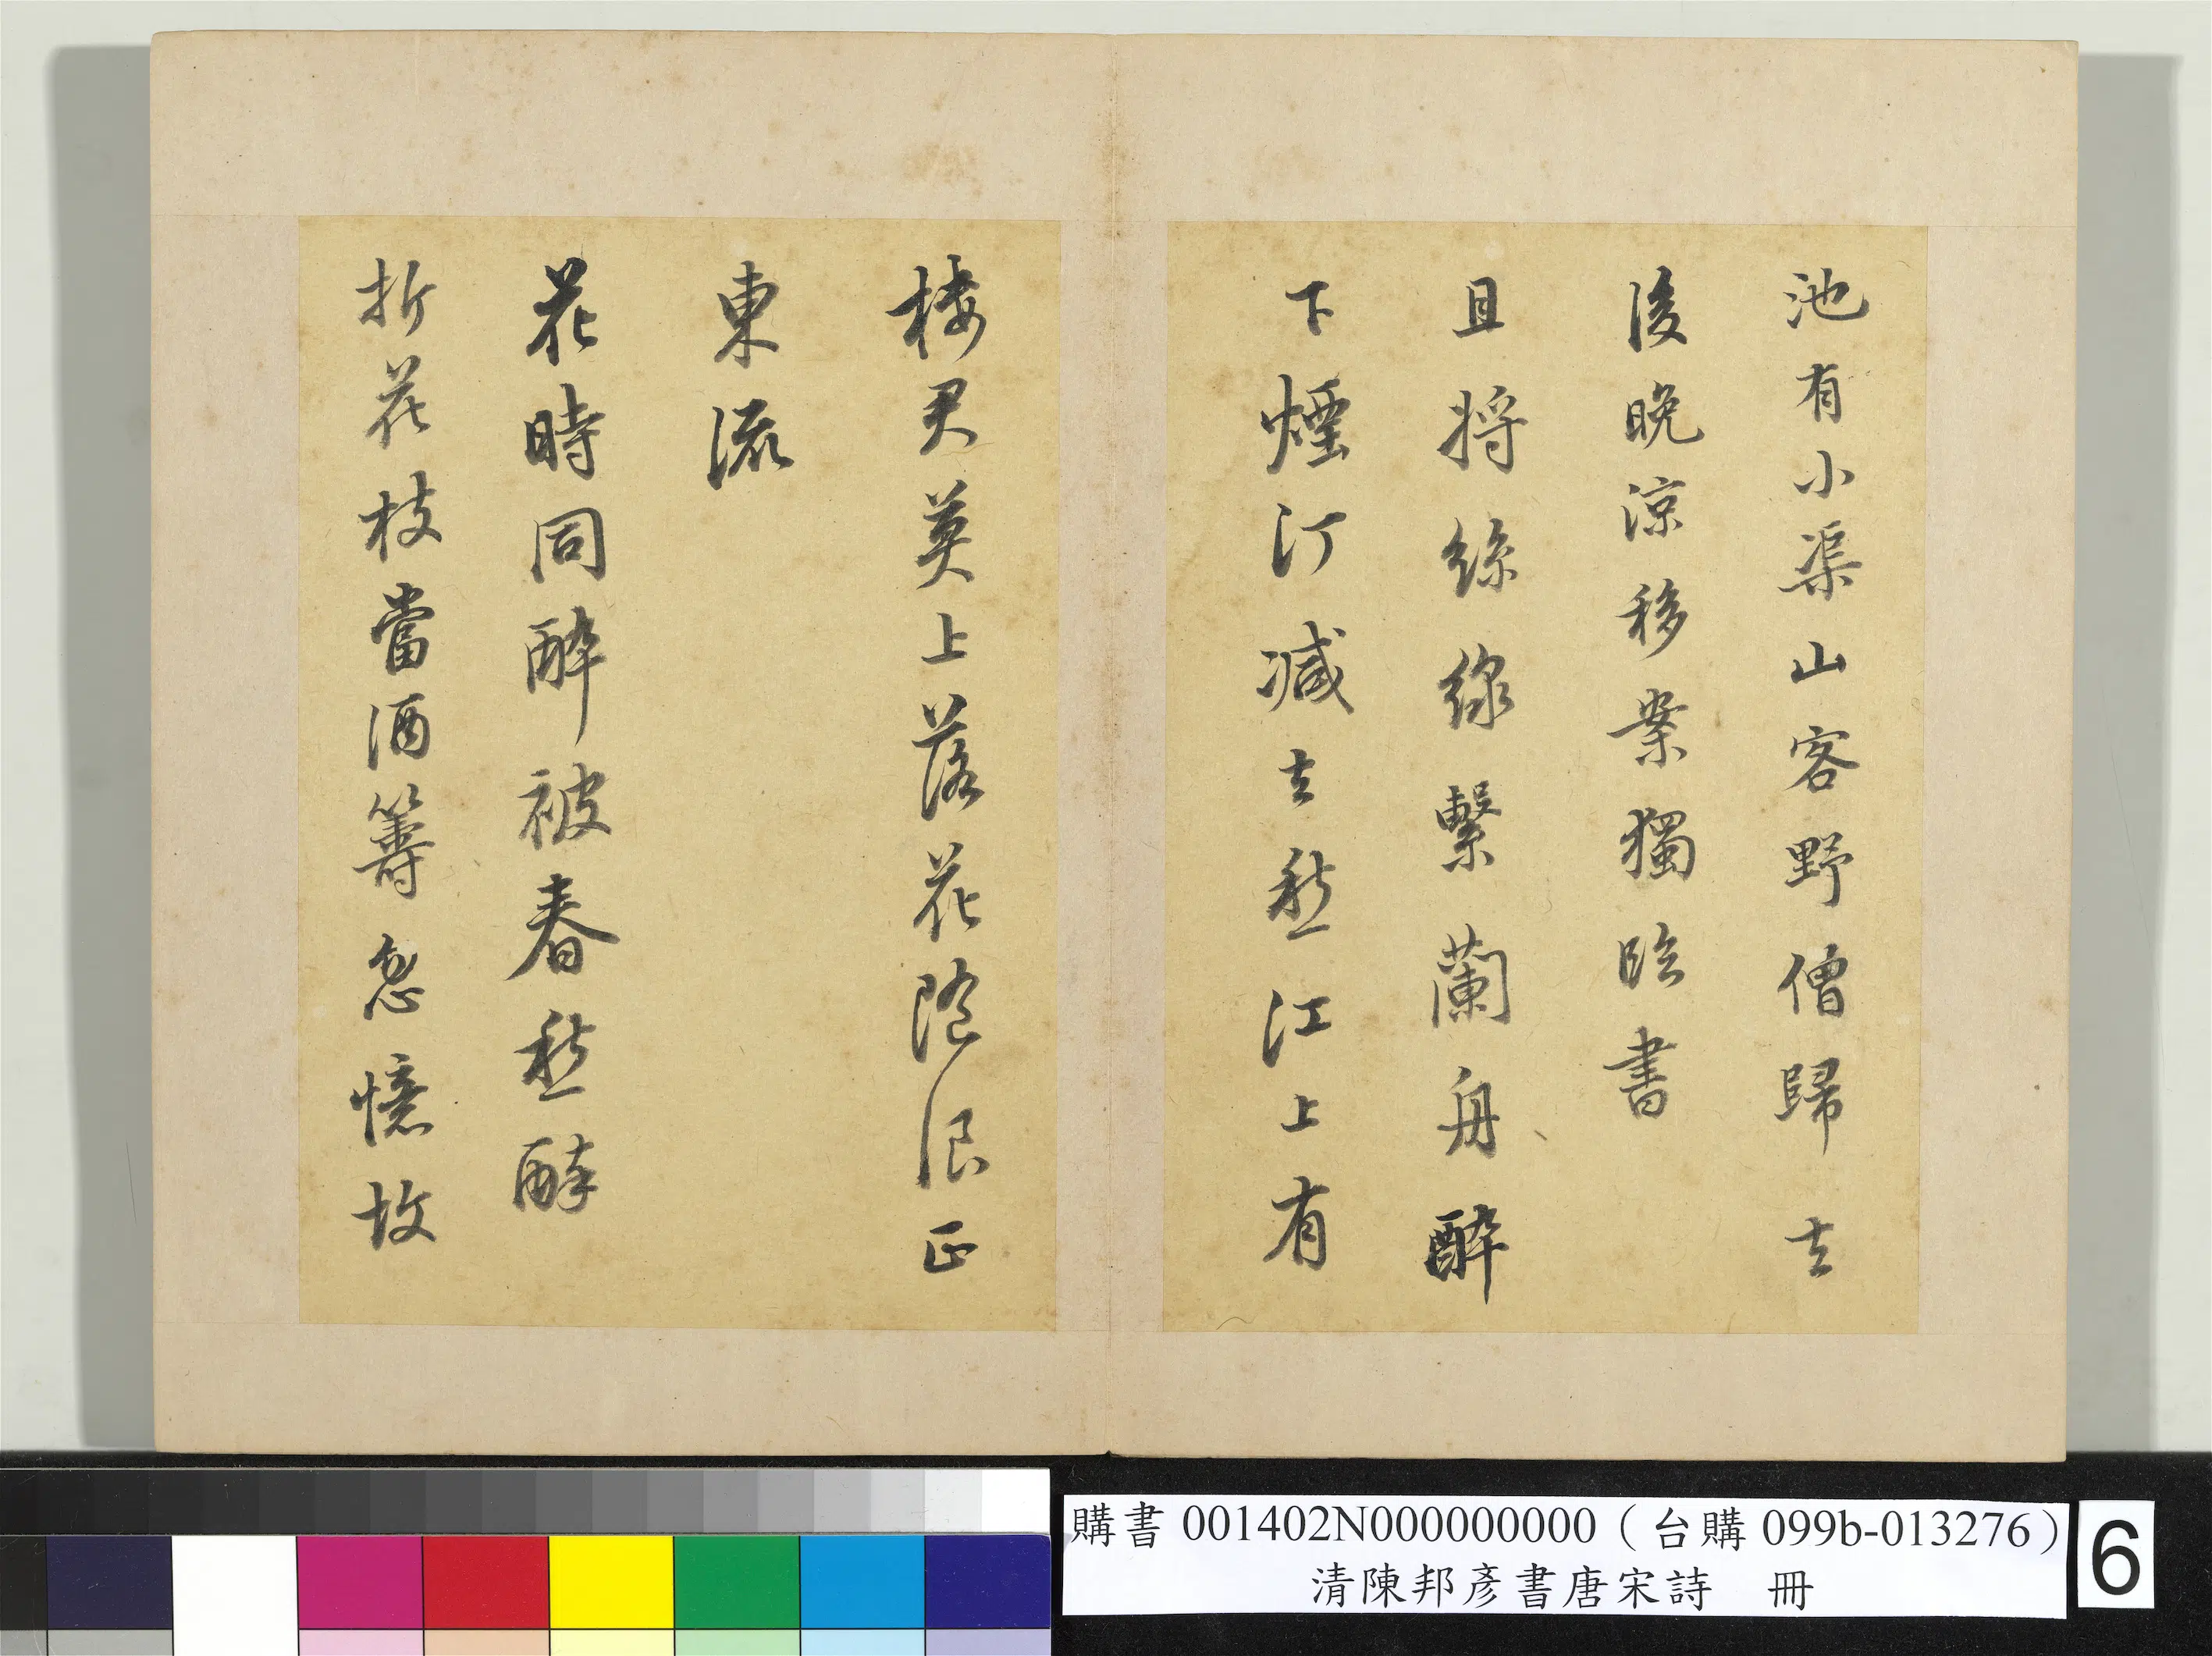 池有小渠山客野僧歸去
後晚涼移案獨臨書
且將絲綠繫蘭舟醉
下煙汀減去愁江上有
樓君莫上落花隨浪正
東流
花時同醉被春愁醉
折花枝當酒籌忽憶故
購書 001402N000000000（台購 099b-013276）
清陳邦彥書唐宋詩　冊
6